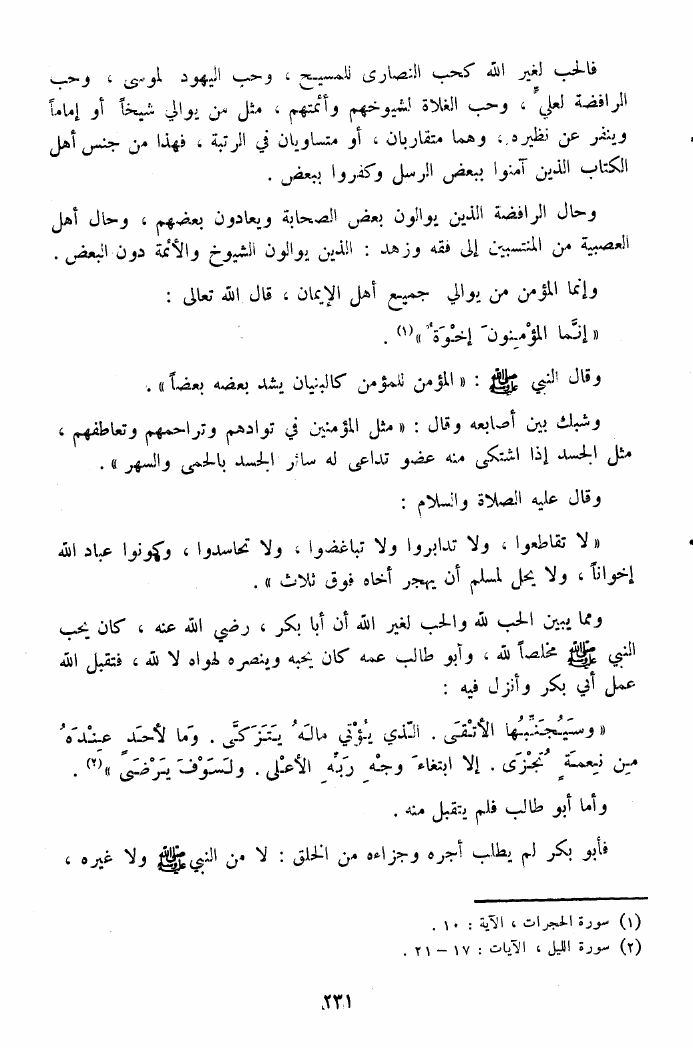 فالحب لغير الله كحب النصارى للمسيح ، وحب اليهود لموسى ، وحب
الرافضة لعليّ ، وحب الغلاة لشيوخهم وأئمتهم ، مثل من يوالي شيخاً أو إماماً
وينفر عن نظيره ، وهما متقاربان ، أو متساويان في الرتبة ، فهذا من جنس أهل
الكتاب الذين آمنوا ببعض الرسل وكفروا ببعض .
وحال الرافضة الذين يوالون بعض الصحابة ويعادون بعضهم ، وحال أهل
العصبية من المنتسبين إلى فقه وزهد : الذين يوالون الشيوخ والأئمة دون البعض .
وإنما المؤمن من يوالي جميع أهل الإيمان ، قال الله تعالى :
« إنَّما المؤْمِنونَ إخْوَةٌ »(١) .
وقال النبي ﷺ : « المؤمن للمؤمن كالبنيان يشد بعضه بعضاً » .
وشبك بين أصابعه وقال : « مثل المؤمنين في توادهم وتراحمهم وتعاطفهم ،
مثل الجسد إذا اشتكى منه عضو تداعى له سائر الجسد بالحمى والسهر » .
وقال عليه الصلاة والسلام :
« لا تقاطعوا ، ولا تدابروا ولا تباغضوا ، ولا تحاسدوا ، وكونوا عباد الله
إخواناً ، ولا يحل لمسلم أن يهجر أخاه فوق ثلاث » .
ومما يبين الحب لله والحب لغير الله أن أبا بكر ، رضي الله عنه ، كان يحب
النبي ﷺ مخلصاً لله ، وأبو طالب عمه كان يحبه وينصره لهواه لا لله ، فتقبل الله
عمل أبي بكر وأنزل فيه :
« وسَيُجَنَّبُها الأتْقَى . الّذي يُؤْتي مالَهُ يَتَزَكَّى . وَما لأحَدٍ عِنْدَهُ
مِن نِعمَةٍ تُجْزَى . إلا ابتغاءَ وجْهِ رَبِّهِ الأعْلى . ولَسَوْفَ يَرْضَى »(٢) .
وأما أبو طالب فلم يتقبل منه .
فأبو بكر لم يطلب أجره وجزاءه من الخلق : لا من النبي ﷺ ولا غيره ،
(١) سورة الحجرات ، الآية : ١٠ .
(٢) سورة الليل ، الآيات : ١٧ – ٢١ .
٢٣١